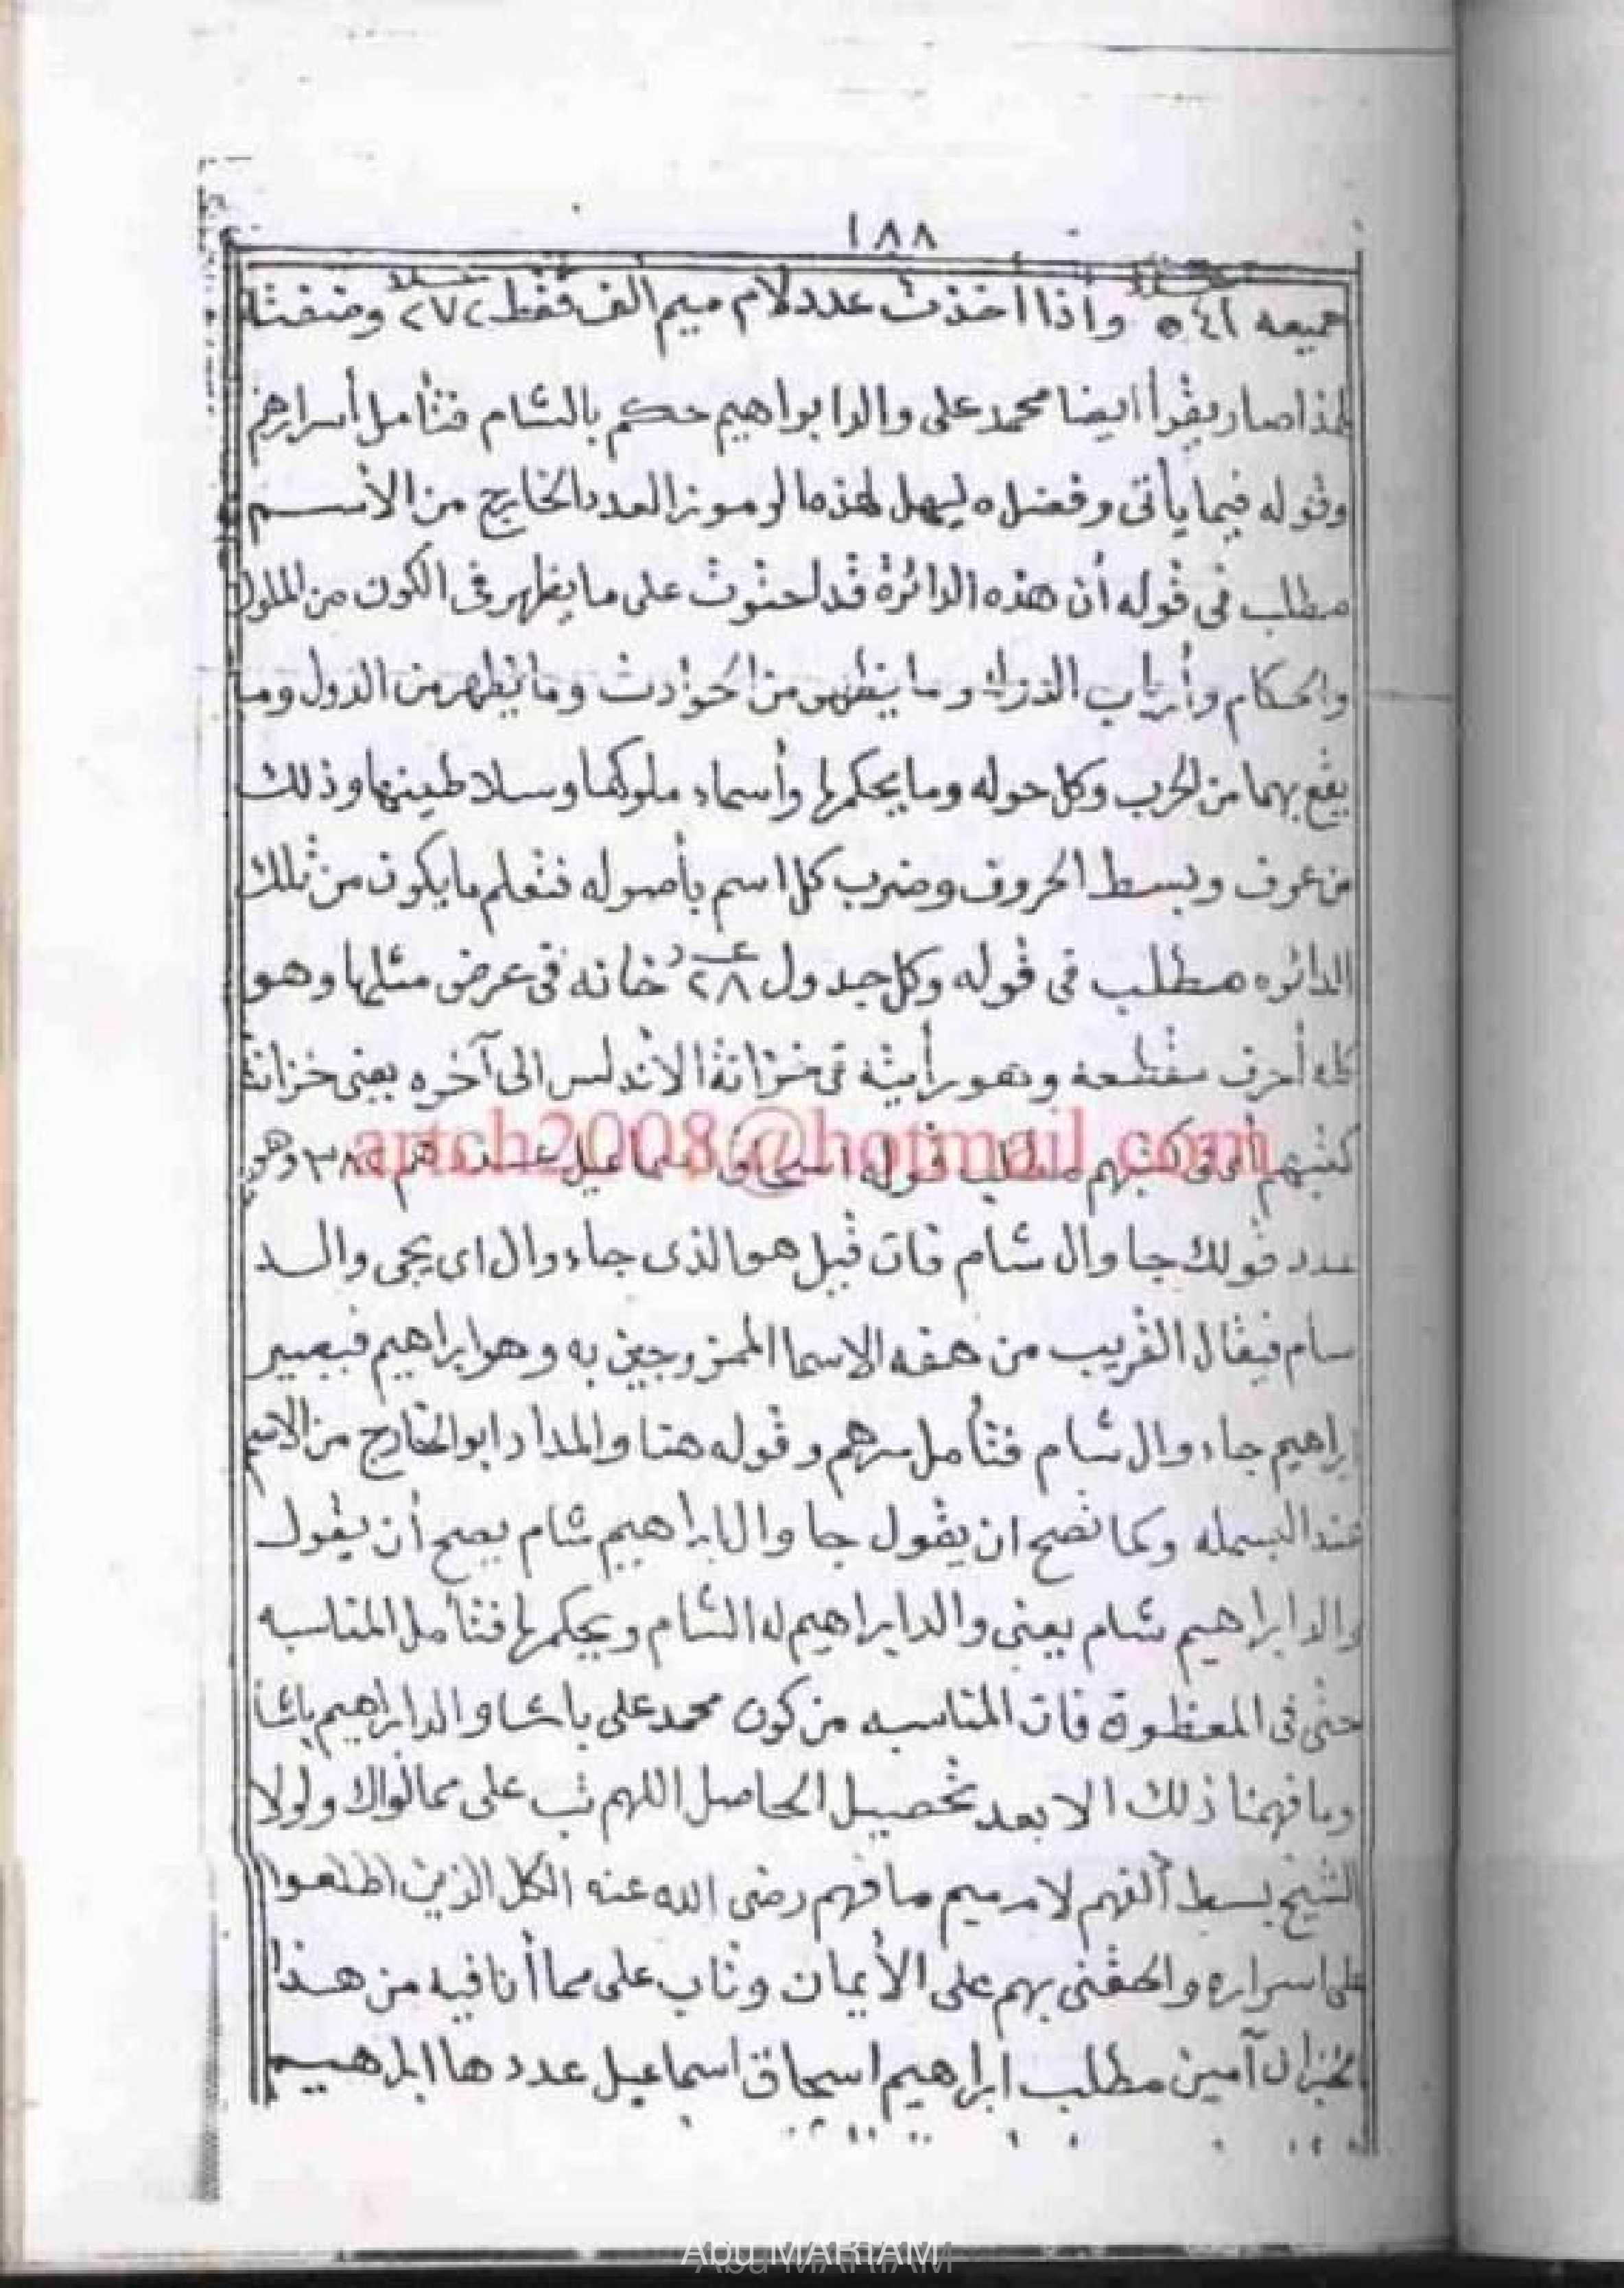 ١٨٨
جميعه ٥٤١ واذا اخذت عدد لام ميم الف فقط ٢٧٢ وضفته
لهذا صار يقرأ ايضا محمد على والد ابراهيم حكم بالشام فتأمل أسرارهم
وقوله فيما يأتى وفضله ليهل لهذه الرموز العدد الخارج من الأسم
مطلب فى قوله أن هذه الدائرة قد احتوت على ما يظهر فى الكون من الملوك
والحكام وأرباب وما ينظهر من الحوادث وما يظهر من الدول وما
يقع بهما من الحرب وكل حوله وما يحكمها وأسماء ملوكها وسلاطينها وذلك
من عرف وبسط الحروف وضرب كل اسم بأصوله فتعلم ما يكون من تلك
الدائره مطلب فى قوله وكل جدول ٢٨ خانه فى عرض مثلها وهو
كله أحرف مقطعه وهو رأيته فى خزانة الاندلس الى آخره يعنى خزانة
كتبهم أى فى كتبهم مطلب قوله اسحاق اسماعيل وهو
artch2008@hotmail.com
عدد قولك جا وال شام فان قيل هو الذى جاء وال اى يجى والد
سام فيقال القريب من هذه الاسما الممزوجين به وهو ابراهيم فيصير
ابراهيم جاء وال شام فتأمل سرهم وقوله هنا والمدار ابو الخارج من الاسم
عند البسمله وكما تصح ان يقول جا وال ابراهيم شام يصح أن يقول
والد ابراهيم شام يعنى والد ابراهيم له الشام ويحكمها فتأمل المناسبه
حتى فى المعظوة فان المناسبه من كون محمد على باشا والد ابراهيم باشا
وما فهمنا ذلك الا بعد تحصيل الحاصل اللهم تب على ولولا
الشيخ بسط ألفهم لام ميم ما فهم رضى الله عنه الكل الذين اطلعوا
على اسراره والحقنى بهم على الأيمان وتاب على مما أنا فيه من هذا
آمين مطلب ابراهيم اسحاق اسماعيل عدد ها ابراهيم
Abu MARIAM